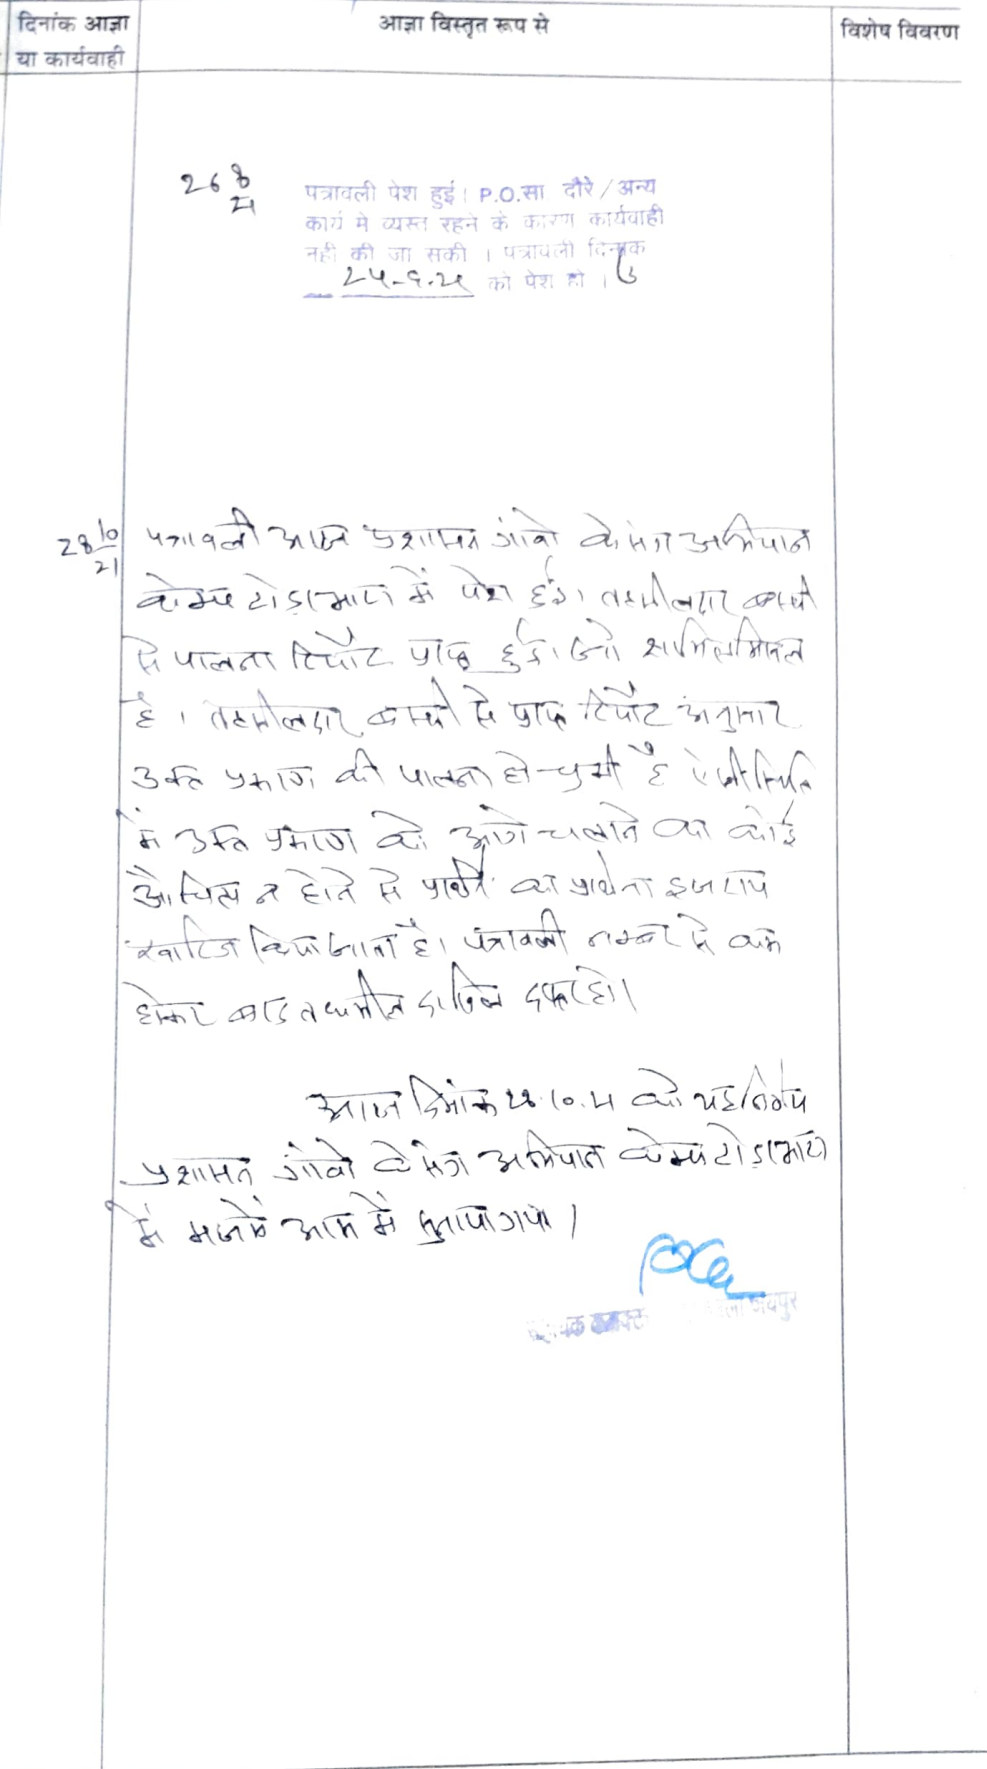 दिनांक आज्ञा
या कार्यवाही
आज्ञा विस्तृत रूप से
विशेष विवरण
26 8/21
पत्रावली पेश हुई। P.O.सा दौरे/अन्य
कार्य मे व्यस्त रहने के कारण कार्यवाही
नही की जा सकी । पत्रावली दिनांक
को पेश हो ।
28 10/21
पत्रावली आज प्रशासन गांवो के संग अभियान
केम्प टोडाभाटा में पेश हुई। तहसीलदार बस्सी
से पालना रिपोर्ट प्राप्त हुई। जो शामिल मिसल
है । तहसीलदार बस्सी से प्राप्त रिपोर्ट अनुसार
उक्त प्रकरण की पालना हो चुकी है ऐसी स्थिति
में उक्त प्रकरण को आगे चलाने का कोई
औचित्य न होने से प्रार्थी का प्रार्थना इजराय
खारिज किया जाता है। पत्रावली नम्बर से कम
होकर बाद तकमील दाखिल दफ्तर हो।
आज दिनांक 28.10.21 को यह निर्णय
प्रशासन गांवो के संग अभियान केम्प टोडाभाटा
में मजमे आम में सुनाया गया ।
सहायक कलक्टर जयपुर